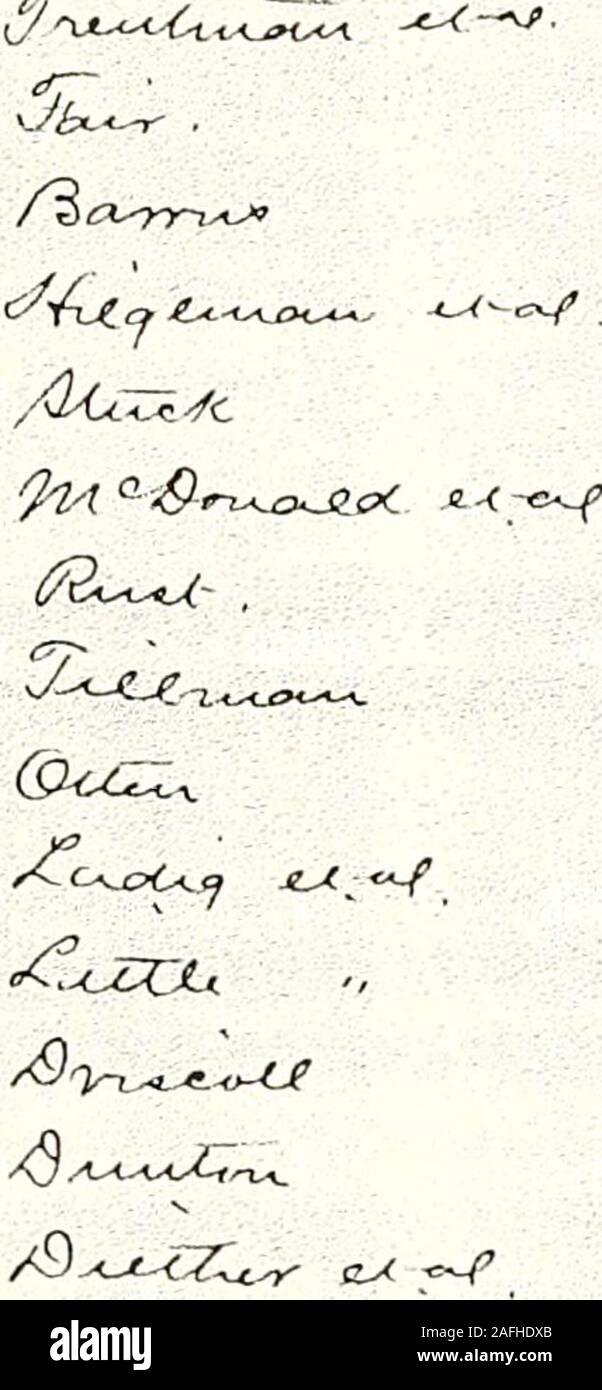 Trentman et al.
Fair.
Barrus
Hilgeman et al.
Stuck
McDonald et al
Rust.
Tillman
Otten
Ludig et al.
Little "
Driscoll
Dunton
Diether et al.
alamy
Image ID: 2AFHDXB
www.alamy.com